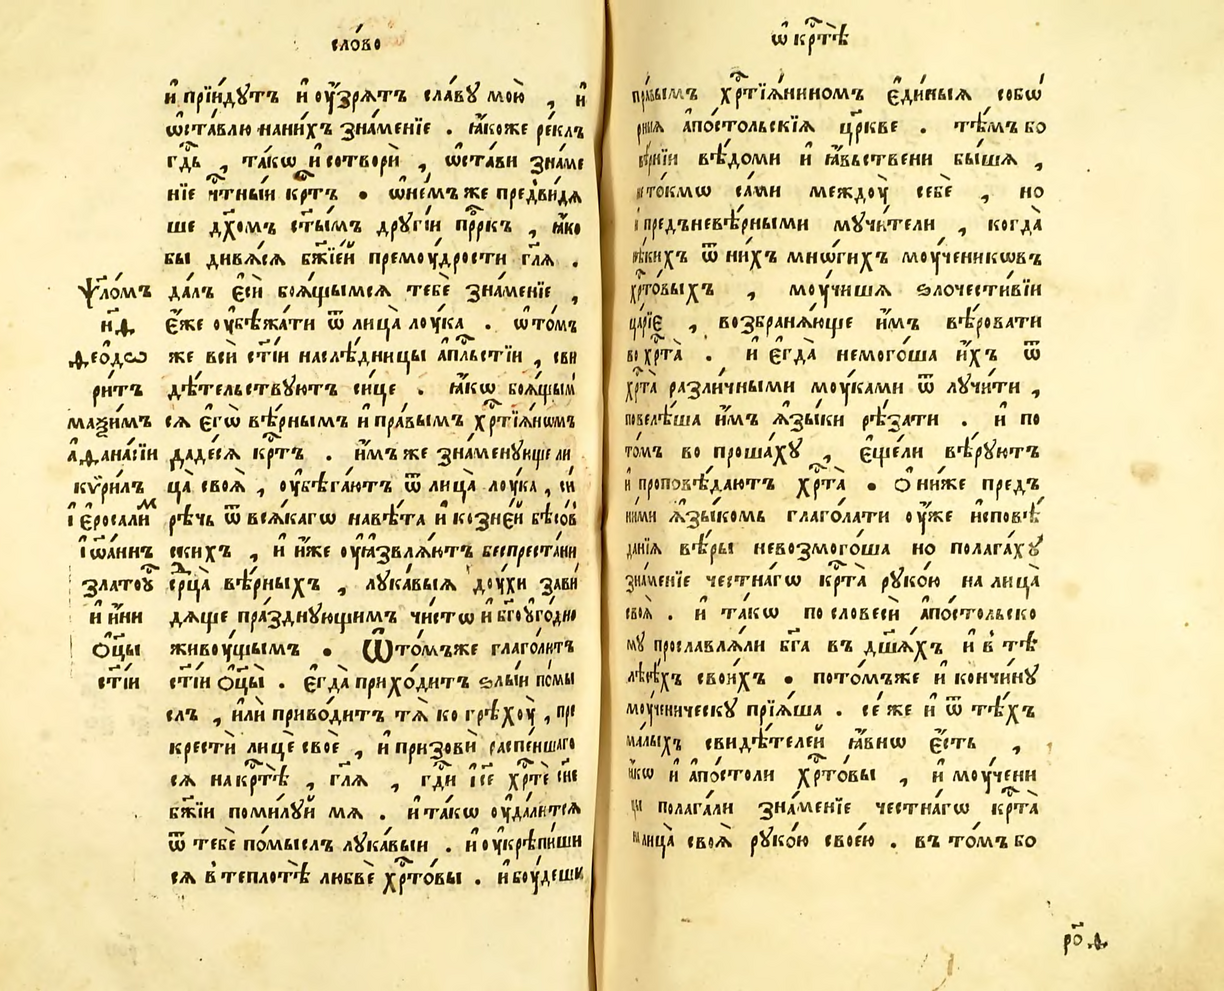 сло́во
и҆ прїи́дутъ и҆ оу҆́зрѧтъ сла́ву мою̀ , и҆
ѡ҆ста́влю нани́хъ зна́менїе . ꙗ҆́коже ре́клъ
гд҇ь , та́кѡ и҆ сотворѝ , ѡ҆ста́ви зна́ме
нїе чт҇ныи кр҇тъ . ѡ҆не́мъ же предъви́дѧ
ше дх҃омъ ст҃ы́мъ други́и пр҇ркъ , ꙗ҆́ко
бы дивѧ́сѧ бж҃їей премоу́дрости гл҃ѧ .
Ѱало́мъ
да́лъ є҆сѝ боѧ́щымсѧ тебѐ зна́менїе ,
н҃ѳ
є҆́же оу҆бѣжа́ти ѿ лица̀ лоу́ка . ѡ҆то́мъ
Ѳео́дѡ
же всѝ ст҃і́и наслѣ́дницы а҆пльстїи , сви
ритъ
дѣ́тельствуютъ си́це . ꙗ҆́кѡ боѧ́щым
маѯи́мъ
сѧ є҆гѡ̀ вѣ́рнымъ и҆ пра́вымъ хр҇тїѧ́нѡмъ
а҆ѳана́сїи
даде́сѧ кр҇тъ . и҆́мъ же зна́менующе ли
кѵри́лъ
ца̀ своѧ̀ , оу҆бѣга́ютъ ѿ лица̀ лоу́ка , си
і҆еросали́м
рѣ́чь ѿ всѧ́кагѡ навѣ́та и҆ ко́зней бѣсо́в
і҆ѡа́ннъ
скихъ , и҆ и҆́же оу҆ѧзвлѧ́ютъ беспреста́ни
златоу́
срд҇ца̀ вѣ́рныхъ , лука́выѧ ду́хи зави
и҆ и҆ни
дѧще пра́зднующимъ чи́стѡ и҆ бг҃оуго́дно
Ѻ҆ц҃ы
живоу́щымъ . Ѿто́мъже глаго́лютъ
ст҃і́и
ст҃і́и ѻ҆ц҃ы̀ . є҆гда̀ прихо́дитъ ѕлы́и помы
слъ , и҆лѝ приво́дитъ тѧ̀ ко грѣхоу̀ , пре
крестѝ лицѐ своѐ , и҆ призовѝ распе́ншаго
сѧ накр҇тѣ̀ , гл҃ѧ , гд҇и і҆с҃е хр҇тѐ сн҃е
бж҃їи поми́луй мѧ . и҆ та́кѡ оу҆дали́тсѧ
ѿ тебѐ по́мыслъ лука́выи . и҆ оу҆крѣпи́ши
сѧ в теплотѣ̀ любвѐ хр҇то́вы . и҆ боу́деши
ѡ҆ кр҇тѣ̀
пра́вымъ хр҇тїѧ́нином є҆ди́ныѧ собѡ́
рныѧ а҆по́стольскїѧ цр҃кве . тѣ́мъ бо
вѣ́рнїи вѣ́доми и҆ ꙗ҆́вьствени бы́шѧ ,
нето́кмѡ са́ми междоу̀ себѐ , но
и҆ предъневѣ́рными мучи́тели , когда̀
нѣ́кихъ ѿ ни́хъ мнѡ́гихъ моу́ченикѡвъ
хр҇то́выхъ , моу́чишѧ ѕлочести́вїи
ца́рїе , возбранѧ́юще и҆̀мъ вѣ́ровати
во хр҇та̀ . и҆ є҆гда̀ немого́ша и҆́хъ ѿ
хр҇та̀ разли́чными моу́ками ѿ лучи́ти ,
повелѣ́ша и҆̀мъ ѧ҆зы́ки рѣ́зати . и҆ по
то́мъ во проша́ху , є҆ще́ли вѣ́руютъ
и҆ проповѣ́даютъ хр҇та̀ . Ѻ҆ни́же предъ
ними ѧ҆зы́комь глаго́лати оу҆́же и҆сповѣ́
данїѧ вѣ́ры невозмого́ша но полага́ху
зна́менїе че́стнагѡ кр҇та̀ руко́ю на лица̀
своѧ̀ . и҆ та́кѡ по словесѝ а҆по́стольско
му прославлѧ́ли бг҃а въ дш҃а́хъ и҆ в тѣ
лесѣ́хъ свои́хъ . пото́мъже и҆ кончи́ну
моу́ченическу прїѧ́ша . се́ же и҆ ѿ тѣ́хъ
ма́лыхъ свидѣ́телей ꙗ҆́внѡ є҆́сть ,
ꙗ҆́кѡ и҆ а҆по́столи хр҇то́вы , и҆ моу́чени
цы полага́ли зна́менїе че́стнагѡ кр҇та̀
на лица̀ своѧ̀ руко́ю свое́ю . въ то́мъ бо
ро҃ѳ